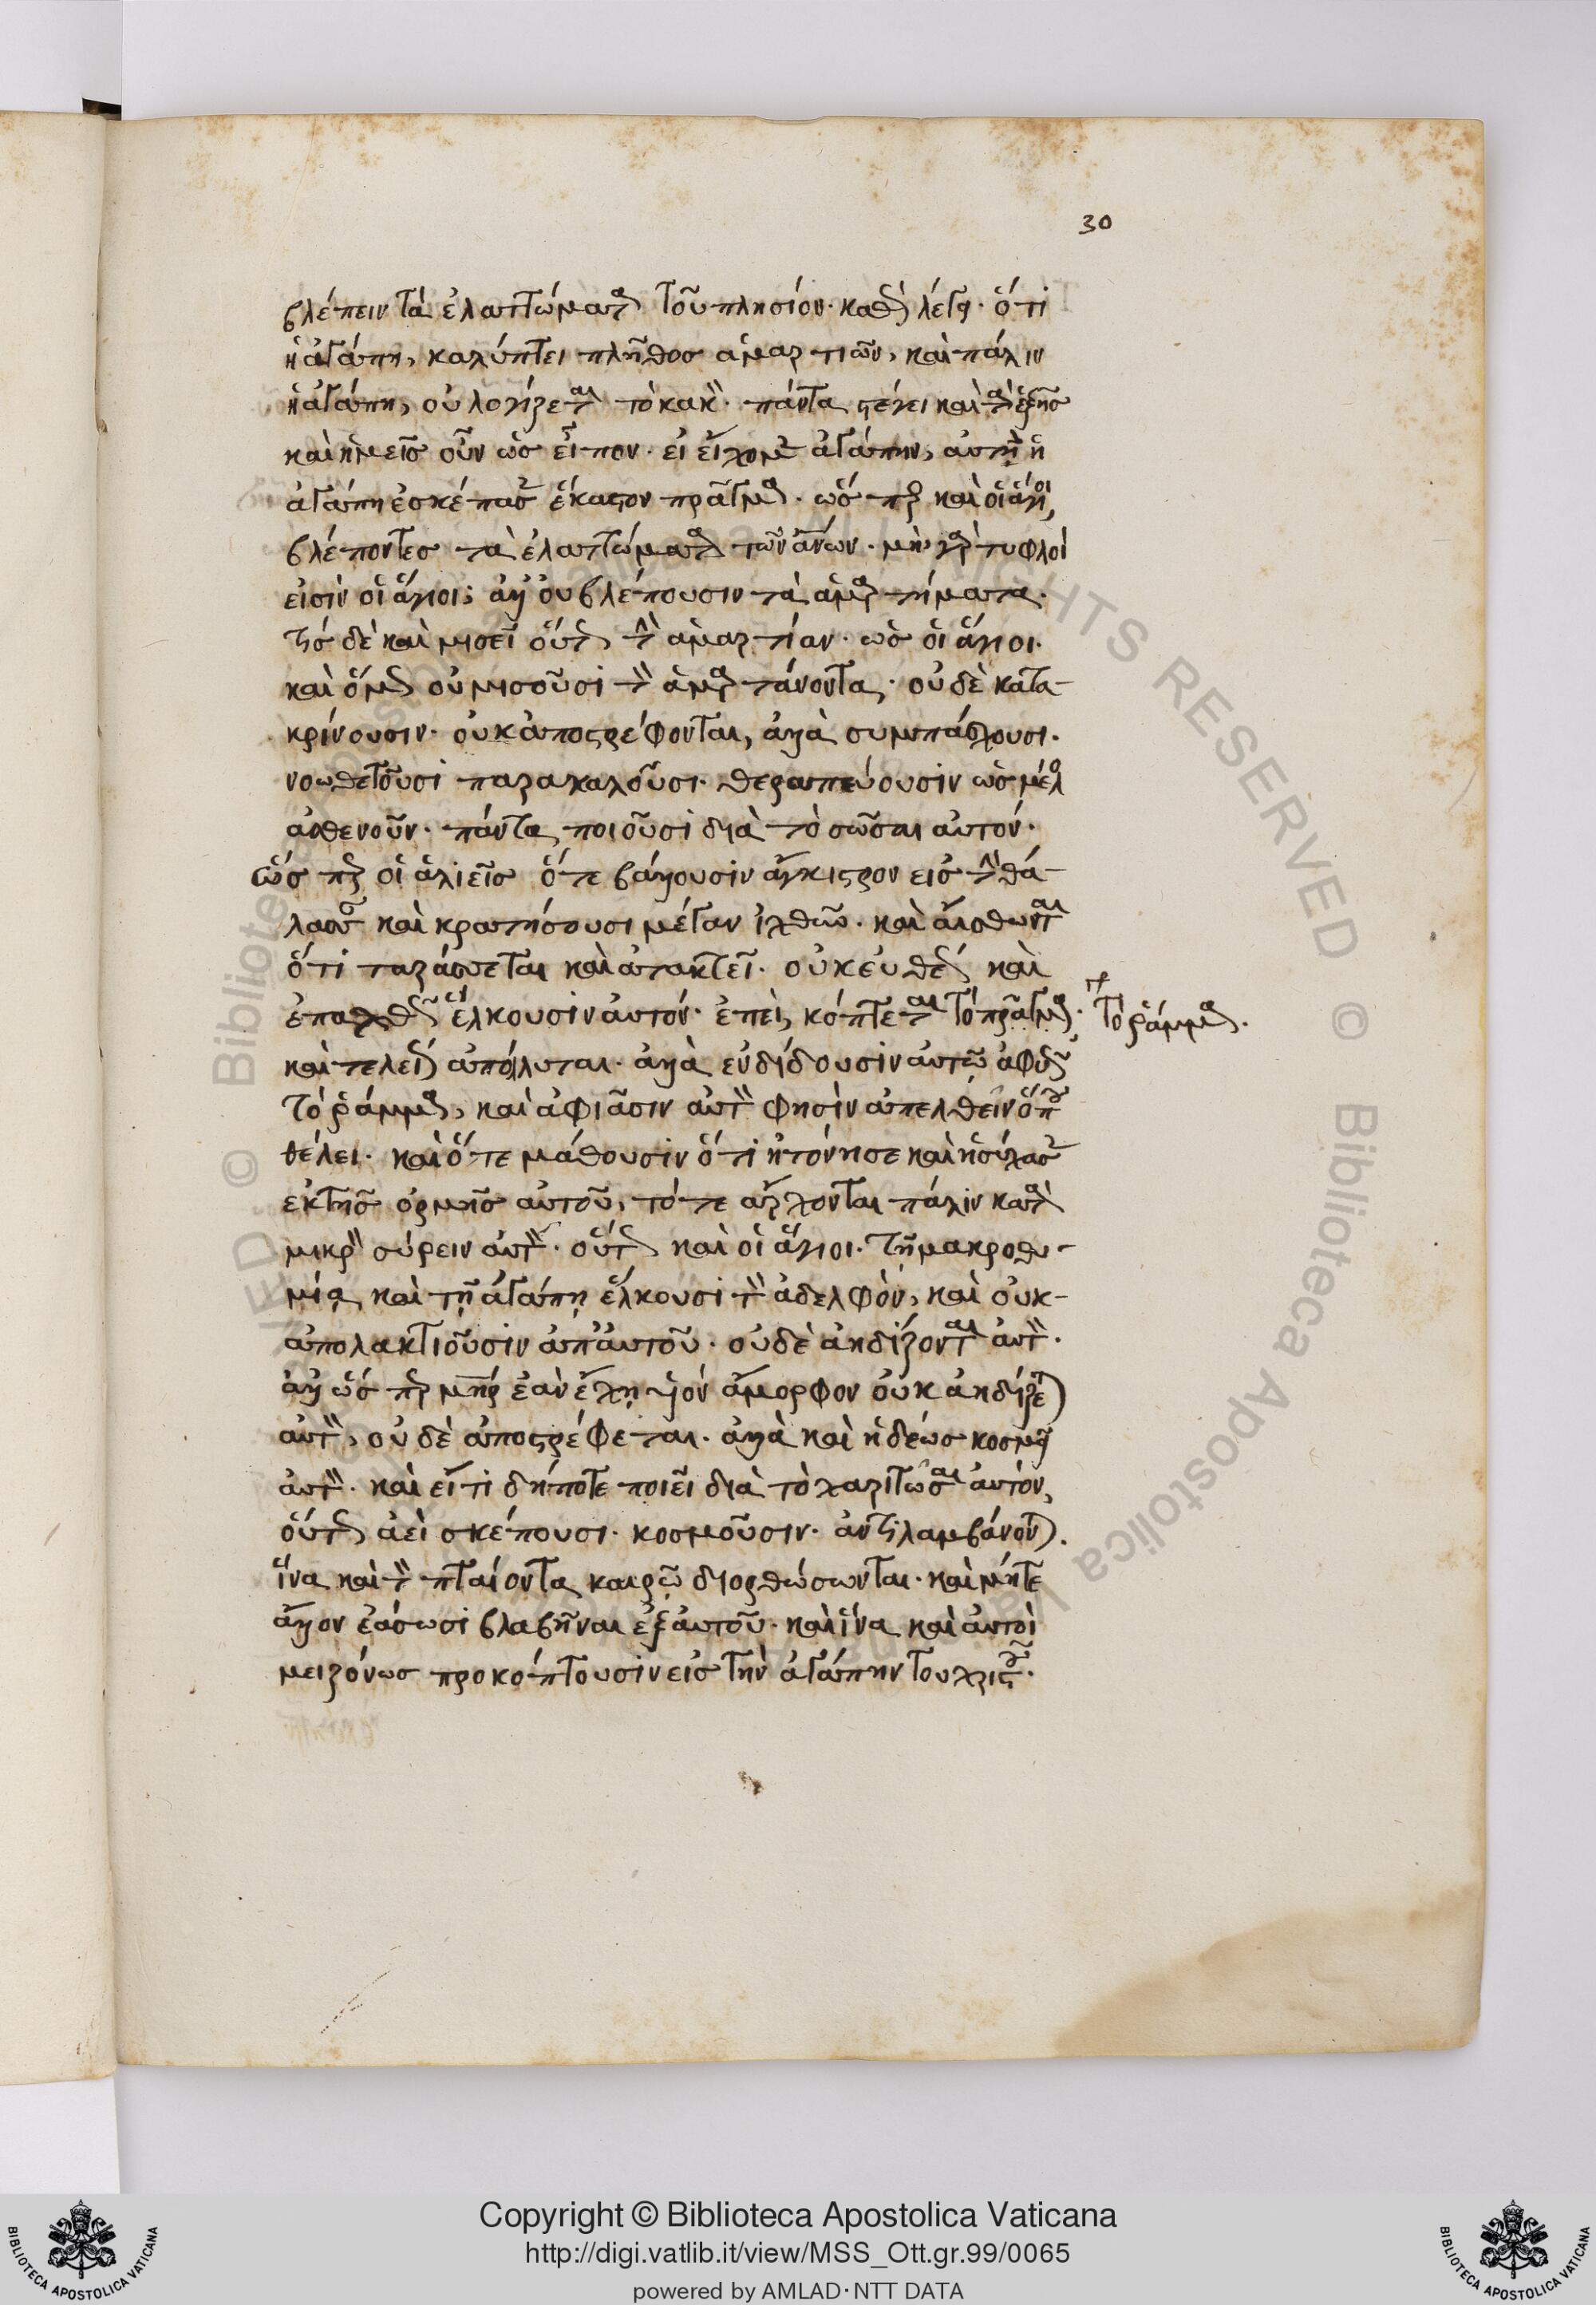 30
βλέπειν τὰ ἐλαττώματα τοῦ πλησίον. καθὼς λέγει. ὅτι
ἡ ἀγάπη, καλύπτει πλῆθος ἁμαρτιῶν, καὶ πάλιν
ἡ ἀγάπη, οὐ λογίζεται τὸ κακὸν. πάντα στέγει καὶ τὰ ἑξῆς
καὶ ἡμεῖς οὖν ὡς εἶπον. εἰ εἴχομεν ἀγάπην, αὐτὴ ἡ
ἀγάπη ἐσκέπασεν ἕκαστον πρᾶγμα. ὥσπερ καὶ οἱ ἅγιοι,
βλέποντες τὰ ἐλαττώματα τῶν ἀνων. μὴ γὰρ τυφλοί
εἰσὶν οἱ ἅγιοι; ἀλλ' οὐ βλέπουσιν τὰ ἁμαρτήματα.
τίς δὲ καὶ μισεῖ οὕτως τὴν ἁμαρτίαν. ὡς οἱ ἅγιοι.
καὶ ὅμως οὐ μισοῦσι τὸν ἁμαρτάνοντα. οὐδὲ κατα-
κρίνουσιν. οὐκ ἀποστρέφονται, ἀλλὰ συμπάσχουσι.
νουθετοῦσι παρακαλοῦσι. θεραπεύουσιν ὡς μέλος
ἀσθενοῦν. πάντα ποιοῦσι διὰ τὸ σῶσαι αὐτόν.
ὥσπερ οἱ ἁλιεῖς ὅτε βάλλουσιν ἄγκιστρον εἰς τὴν θά-
λασσαν καὶ κρατήσουσι μέγαν ἰχθῦν. καὶ αἴσθωνται
ὅτι ταράσσεται καὶ ἀτακτεῖ. οὐκ εὐθέως καὶ
ἐπαχθῶς ἕλκουσιν αὐτόν. ἐπεὶ, κόπτεται τὸ πρᾶγμα.
τὸ ῥάμμα.
καὶ τελείως ἀπόλλυται. ἀλλὰ ἐνδίδουσιν αὐτῷ ἀφόβως
τὸ ῥάμμα, καὶ ἀφιᾶσιν αὐτὸν φησὶν ἀπελθεῖν ὅπου
θέλει. καὶ ὅτε μάθουσιν ὅτι ἠτόνησε καὶ ἡσύχασεν
ἐκ τῆς ὁρμῆς αὐτοῦ, τότε ἄρχονται πάλιν κατὰ
μικρὸν σύρειν αὐτὸν. οὕτως καὶ οἱ ἅγιοι. τῇ μακροθυ-
μίᾳ καὶ τῇ ἀγάπῃ ἕλκουσι τὸν ἀδελφὸν, καὶ οὐκ-
ἀπολακτιοῦσιν ἀπ' αὐτοῦ. οὐδὲ ἀηδίζονται αὐτὸν.
ἀλλ' ὥσπερ μηρ ἐὰν ἔχῃ υἱὸν ἄμορφον οὐκ ἀηδίζεται
αὐτὸν, οὐδὲ ἀποστρέφεται. ἀλλὰ καὶ ἡδέως κοσμεῖ
αὐτὸν. καὶ εἴ τι δήποτε ποιεῖ διὰ τὸ χαριτῶσαι αὐτὸν,
οὕτως ἀεὶ σκέπουσι. κοσμοῦσιν. ἀντιλαμβάνονται.
ἵνα καὶ τὸν πταίοντα καιρῷ διορθώσωνται. καὶ μήτε
ἄλλον ἐάσωσι βλαβῆναι ἐξ αὐτοῦ. καὶ ἵνα καὶ αὐτοὶ
μειζόνως προκόπτουσιν εἰς τὴν ἀγάπην τοῦ χριστοῦ.
Copyright © Biblioteca Apostolica Vaticana
http://digi.vatlib.it/view/MSS_Ott.gr.99/0065
powered by AMLAD·NTT DATA